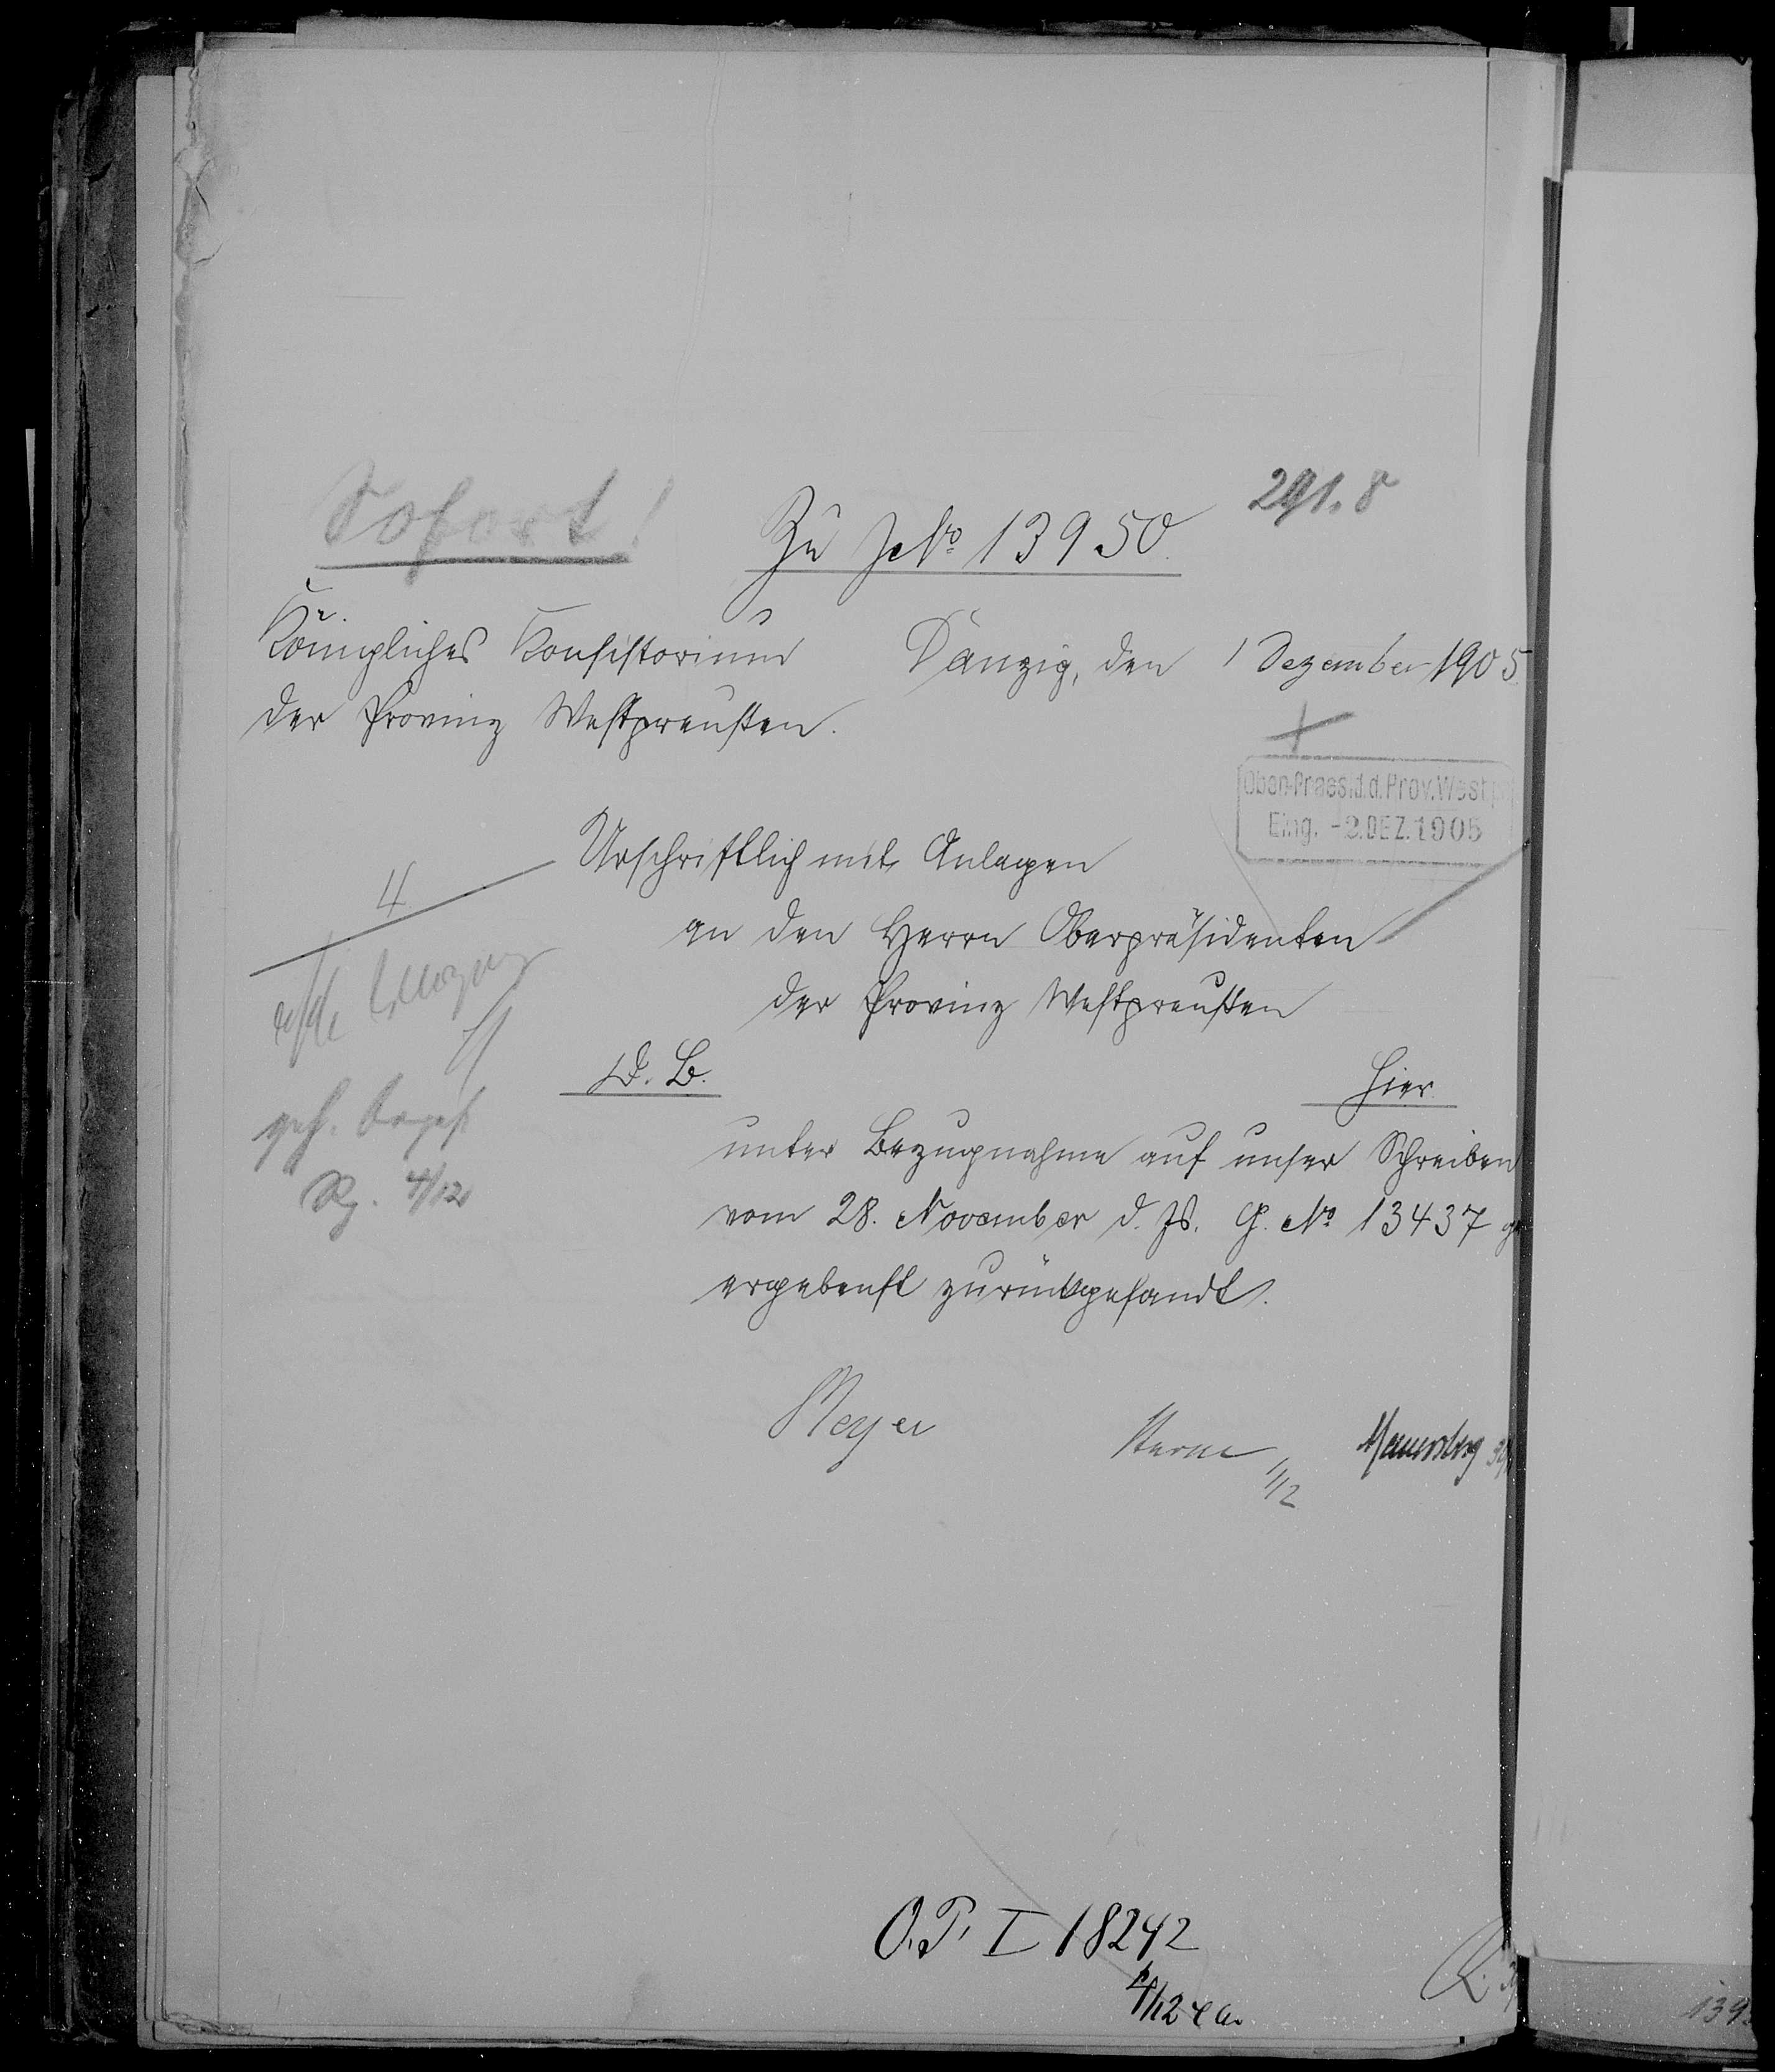 Sofort!
291.8
Zu J.№ 13950.
Königliches Konsistorium
der Provinz Westpreußen.
Danzig, den 1 Dezember 1905.
Ober-Praesid. d. Prov. Westpr
Eing. -2.DEZ.1905
4
Urschriftlich mit Anlagen
an den Herrn Oberpräsidenten
der Provinz Westpreußen
D. B.
Hier.
unter Bezugnahme auf unser Schreiben
vom 28. November d. Js. G. № 13437
ergebenst zurückgesandt.
4/12
Meyer
1/12
O.P. I 18242
4/12